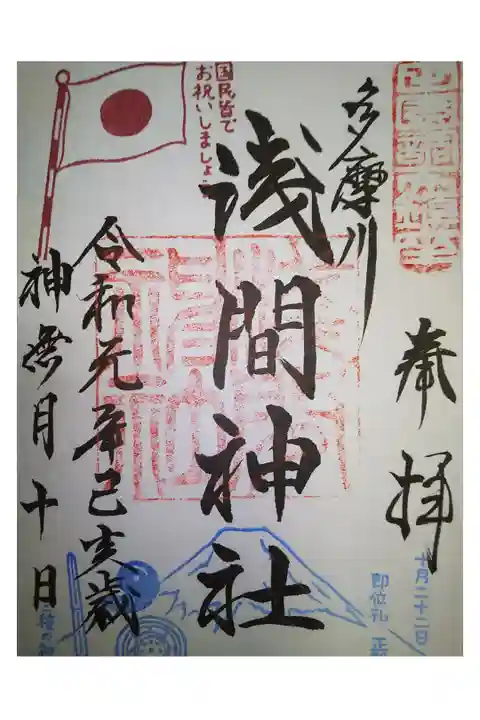 奉拝
多摩川
浅間神社
国民皆で
お祝いしましょう
令和元年己亥歳
神無月十日
十月二十二日
即位礼 正殿